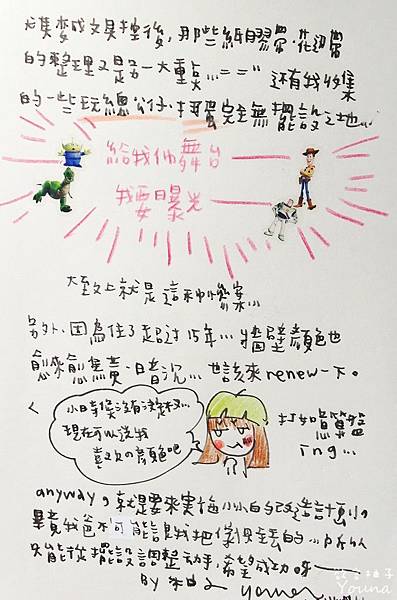 後，那些紙膠帶、花邊帶
的整理又是一大重點...=="還有我收集
的一些玩總公仔、扭蛋完全無擺設之地...
給我們舞台
我要曝光
大致上就是這種慘案...
另外、因為住了超過15年...牆壁顏色也
愈來愈焦黃、暗沉...也該來renew一下。
小時候沒有決定權...
現在可以選我
喜歡的顏色吧
打如意算盤
ing...
anyway，就是要來實施小小的改造計畫。
畢竟我爸不可能讓我把傢俱丟的...所以
只能從擺設調整動手，希望成功呀
By 柚子
Youna